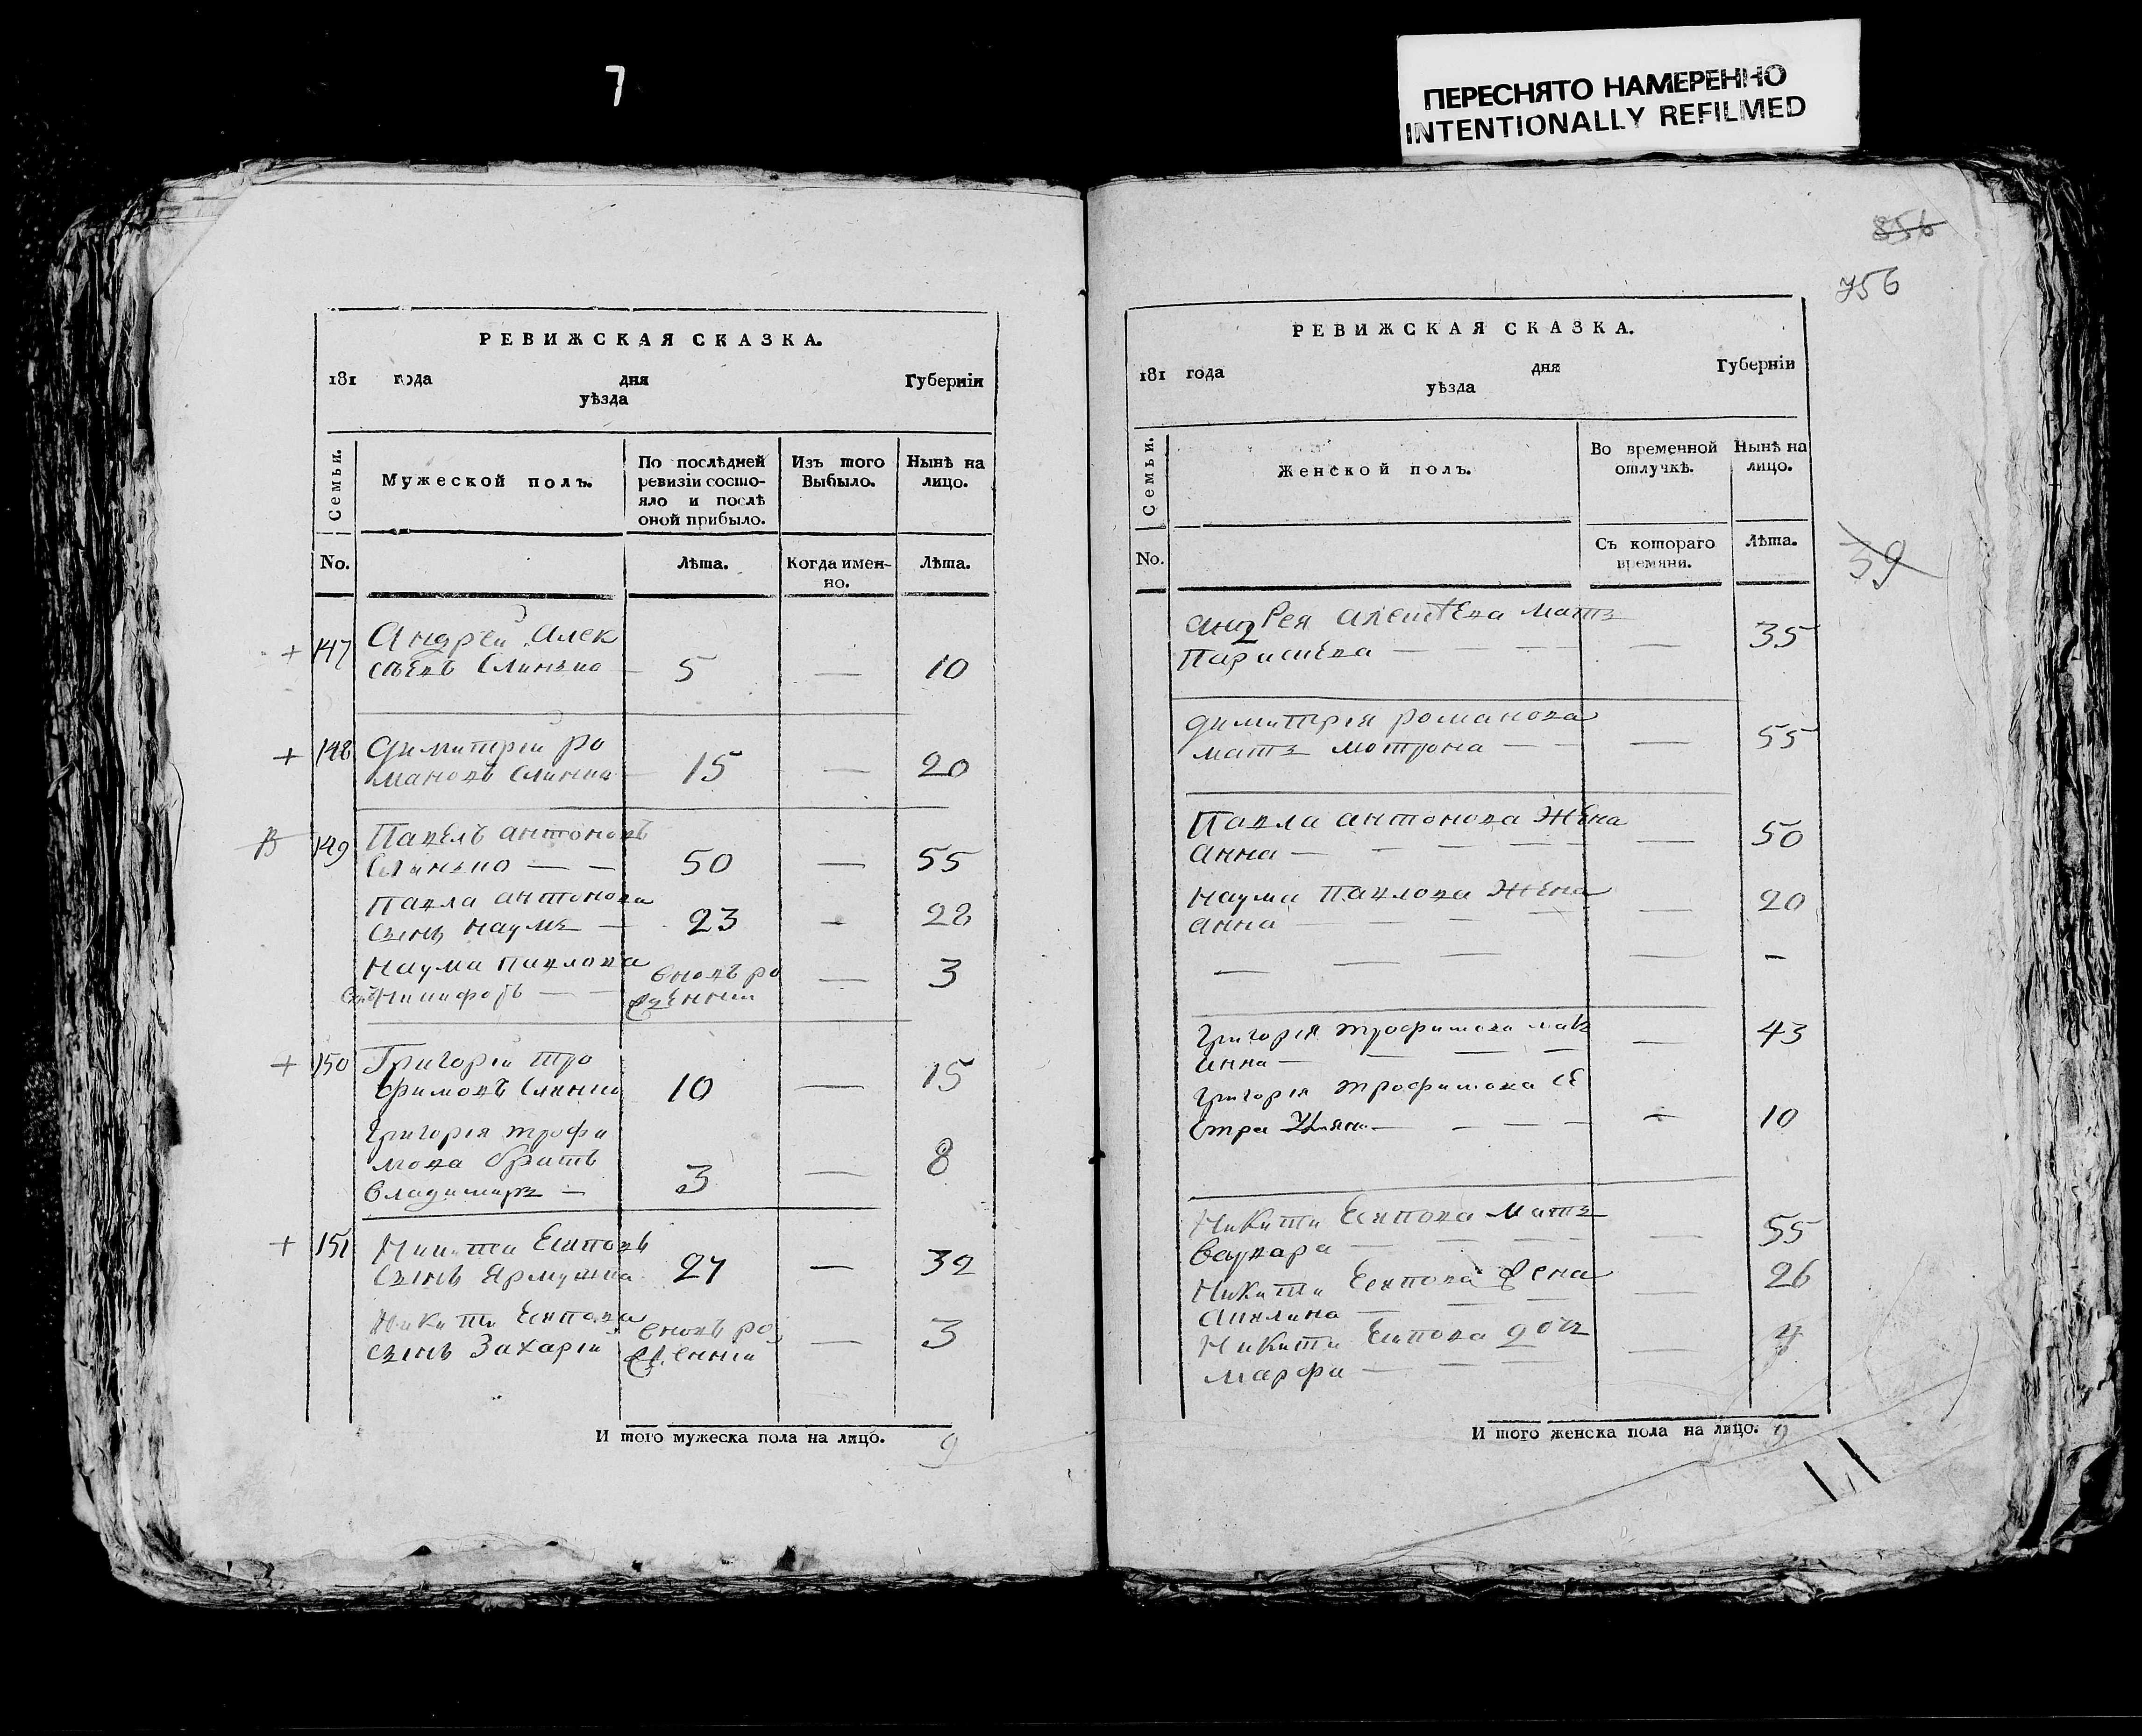 7
ПЕРЕСНЯТО НАМЕРЕННО
INTENTIONALLY REFILMED
РЕВИЖСКАЯ СКАЗКА.
181 года дня Губерніи
уѣзда
Семьи.
Мужеской полъ.
По послѣдней
ревизіи состо-
яло и послѣ
оной прибыло.
Изъ того
Выбыло.
Нынѣ на
лицо.
No.
Лѣта.
Когда имен-
но.
Лѣта.
+ 147 Андрей Алек
сѣевъ Слинько 5 — 10
+ 148 Димитрій Ро
мановъ 15 — 20
149 Павелъ антоновъ
Слинько — — 50 — 55
Павла антонова
сынъ наумъ — 23 — 28
наума павлова вновь ро — 3
сынъ Никифоръ — — жденный
+ 150 Григорій тро
фимовъ 10 — 15
григорія трофи
мова братъ
владимиръ — 3 — 8
+ 151 Никита Есиповъ
сынъ 27 — 32
Никиты Есипова вновь ро
сынъ Захарій жденній — 3
И того мужеска пола на лицо. 9
856
756
39
РЕВИЖСКАЯ СКАЗКА.
181 года дня Губерніи
уѣзда
Семьи.
Женской полъ.
Во временной
отлучкѣ.
Нынѣ на
лицо.
No.
Съ котораго
времяни.
Лѣта.
андрея алексѣева мать
— — — — — 35
димитрія романова
мать мотрона — — — 55
Павла антонова жена
анна — — — — — — 50
наума павлова жена
анна — — — — 20
— — — — —
григорія трофимова мать — 43
анна — — — —
григорія трофимова се
стра Уляна — — — — — 10
Никиты Есипова мать
варвара — — — — — 55
Никиты Есипова жена — 26
— — —
Никиты Есипова дочь —
марфа — — — —
И того женска пола на лицо. 9